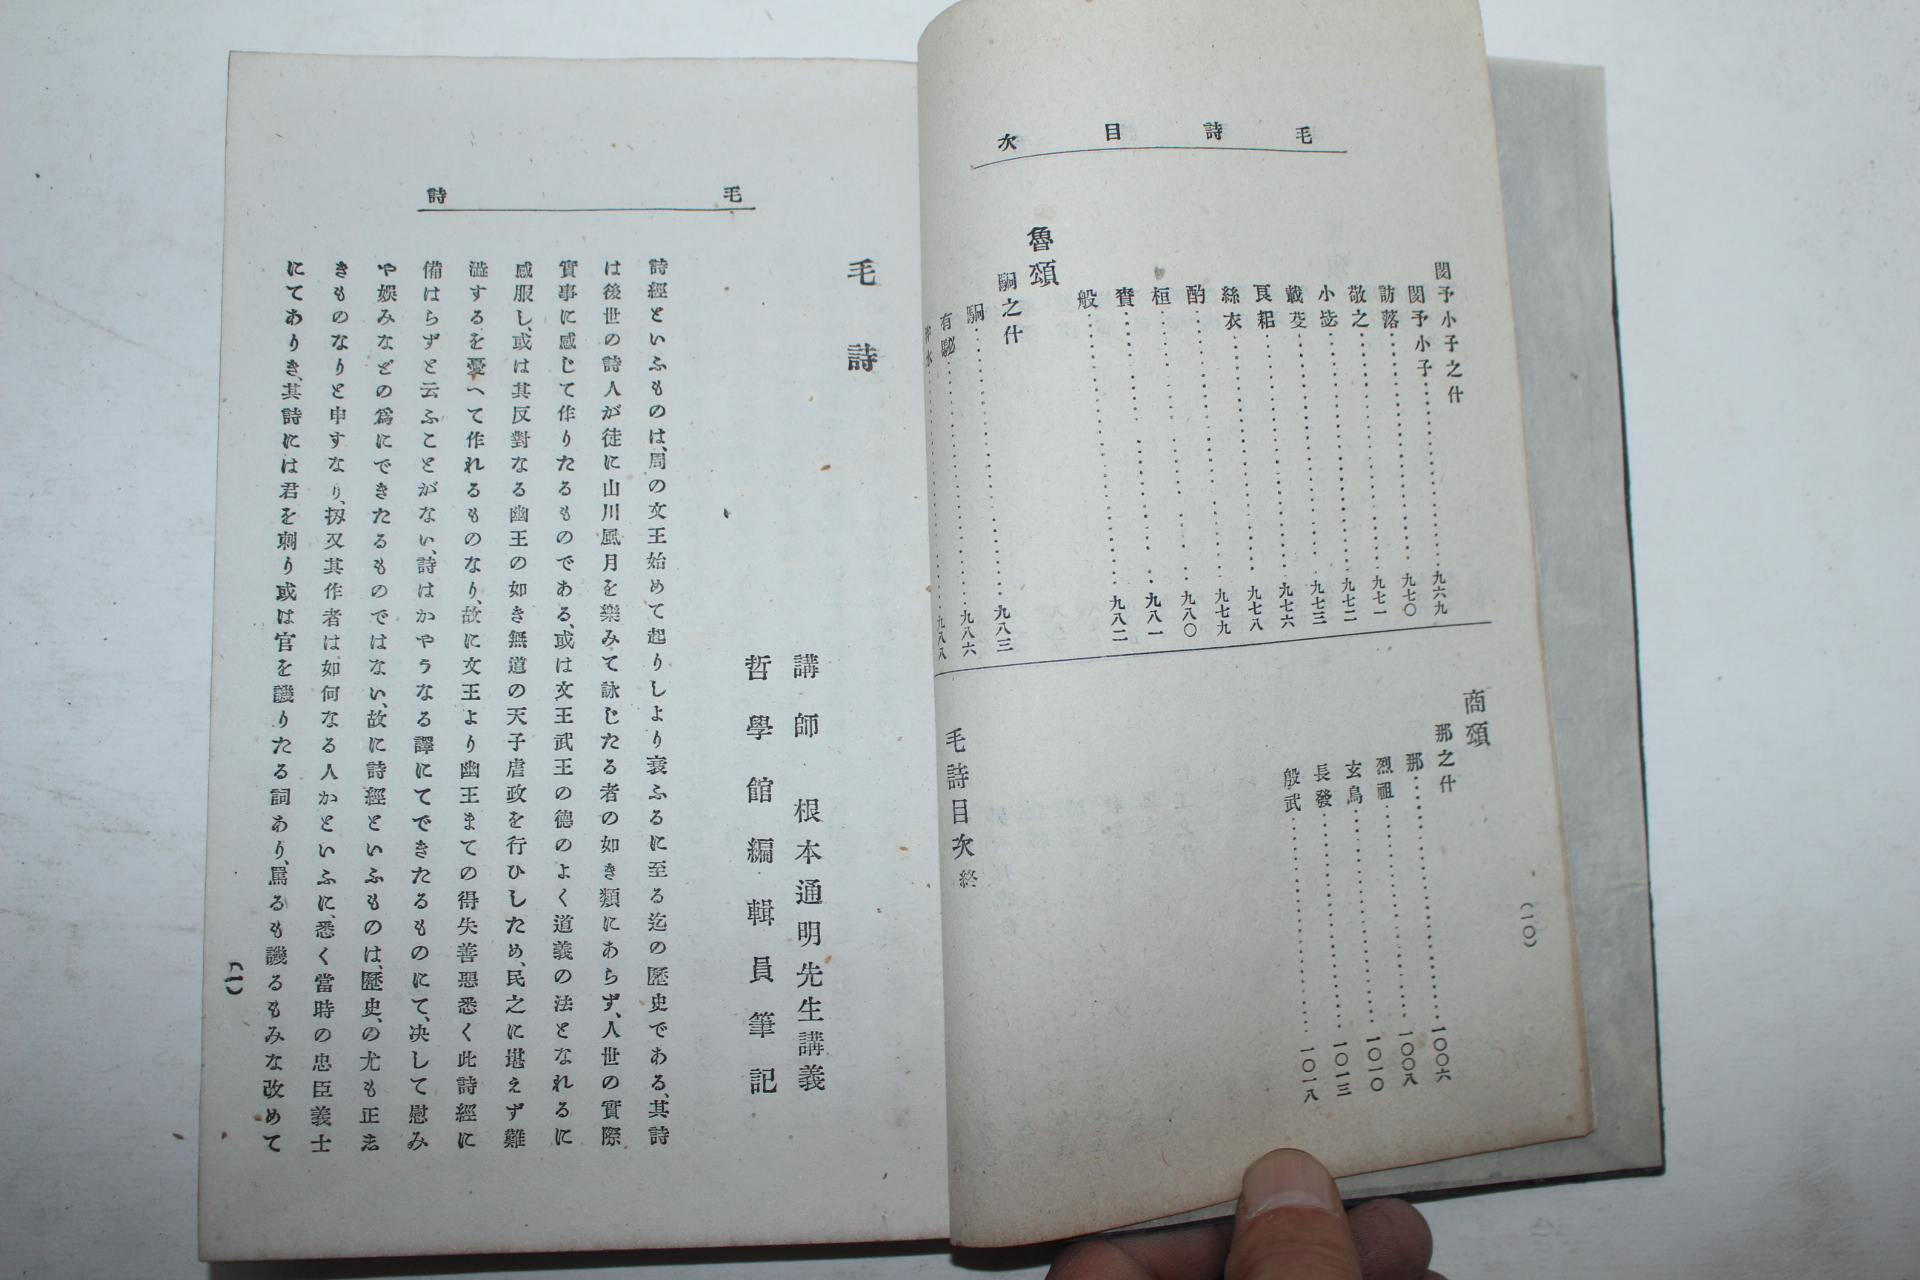 毛詩目次
閔予小子之什……九六九
閔予小子……九七〇
訪落……九七一
敬之……九七二
小毖……九七三
載芟……九七六
良耜……九七八
絲衣……九七九
酌……九八〇
桓……九八一
賚……九八二
般
魯頌
駉之什……九八三
駉……九八六
有駜……九八八
商頌
那之什……一〇〇六
那……一〇〇八
烈祖……一〇一〇
玄鳥……一〇一三
長發……一〇一八
殷武
毛詩目次終
(一〇)
毛詩
毛詩
講師 根本通明先生講義
哲學館編輯員筆記
詩經といふものは、周の文王始めて起りしより衰ふるに至る迄の歷史である、其詩
は後世の詩人が徒に山川風月を樂みて詠じたる者の如き類にあらず、人世の實際
實事に感じて作りたるものである、或は文王武王の德のよく道義の法となれるに
感服し、或は其反對なる幽王の如き無道の天子虐政を行ひしため、民之に堪えず難
澁するを憂へて作れるものなり、故に文王より幽王まての得失善惡悉く此詩經に
備はらずと云ふことがない、詩はかやうなる譯にてできたるものにて、决して慰み
や娛みなどの爲にできたるものではない、故に詩經といふものは、歷史、の尤も正志
きものなりと申すなり、扨又其作者は如何なる人かといふに、悉く當時の忠臣義士
にてありき、其詩には君を刺り或は官を譏りたる詞あり、罵るも譏るもみな改めて
(一)